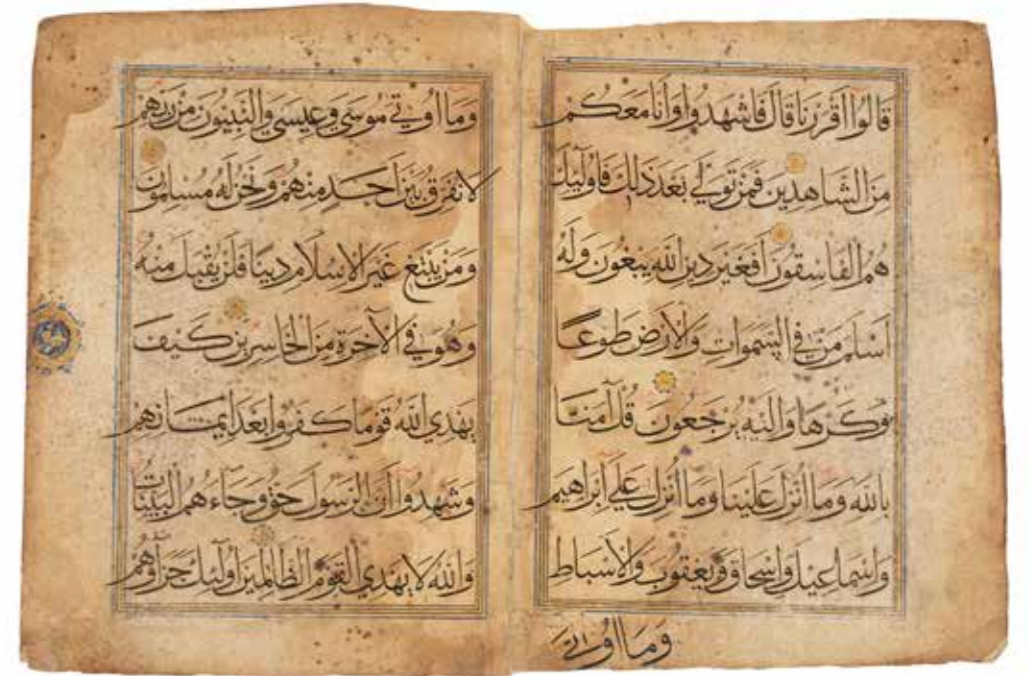 قالوا اقررنا قال فاشهدوا وانا معكم
من الشاهدين فمن تولى بعد ذلك فاولئك
هم الفاسقون افغير دين الله يبغون وله
اسلم من في السموات والارض طوعا
وكرها واليه يرجعون قل آمنا
بالله وما انزل علينا وما انزل على ابراهيم
واسماعيل واسحاق ويعقوب والاسباط
وما اوتي
وما اوتي موسى وعيسى والنبيون من ربهم
لا نفرق بين احد منهم ونحن له مسلمون
ومن يبتغ غير الاسلام دينا فلن يقبل منه
وهو في الآخرة من الخاسرين كيف
يهدي الله قوما كفروا بعد ايمانهم
وشهدوا ان الرسول حق وجاءهم البينات
والله لا يهدي القوم الظالمين اولئك جزاؤهم